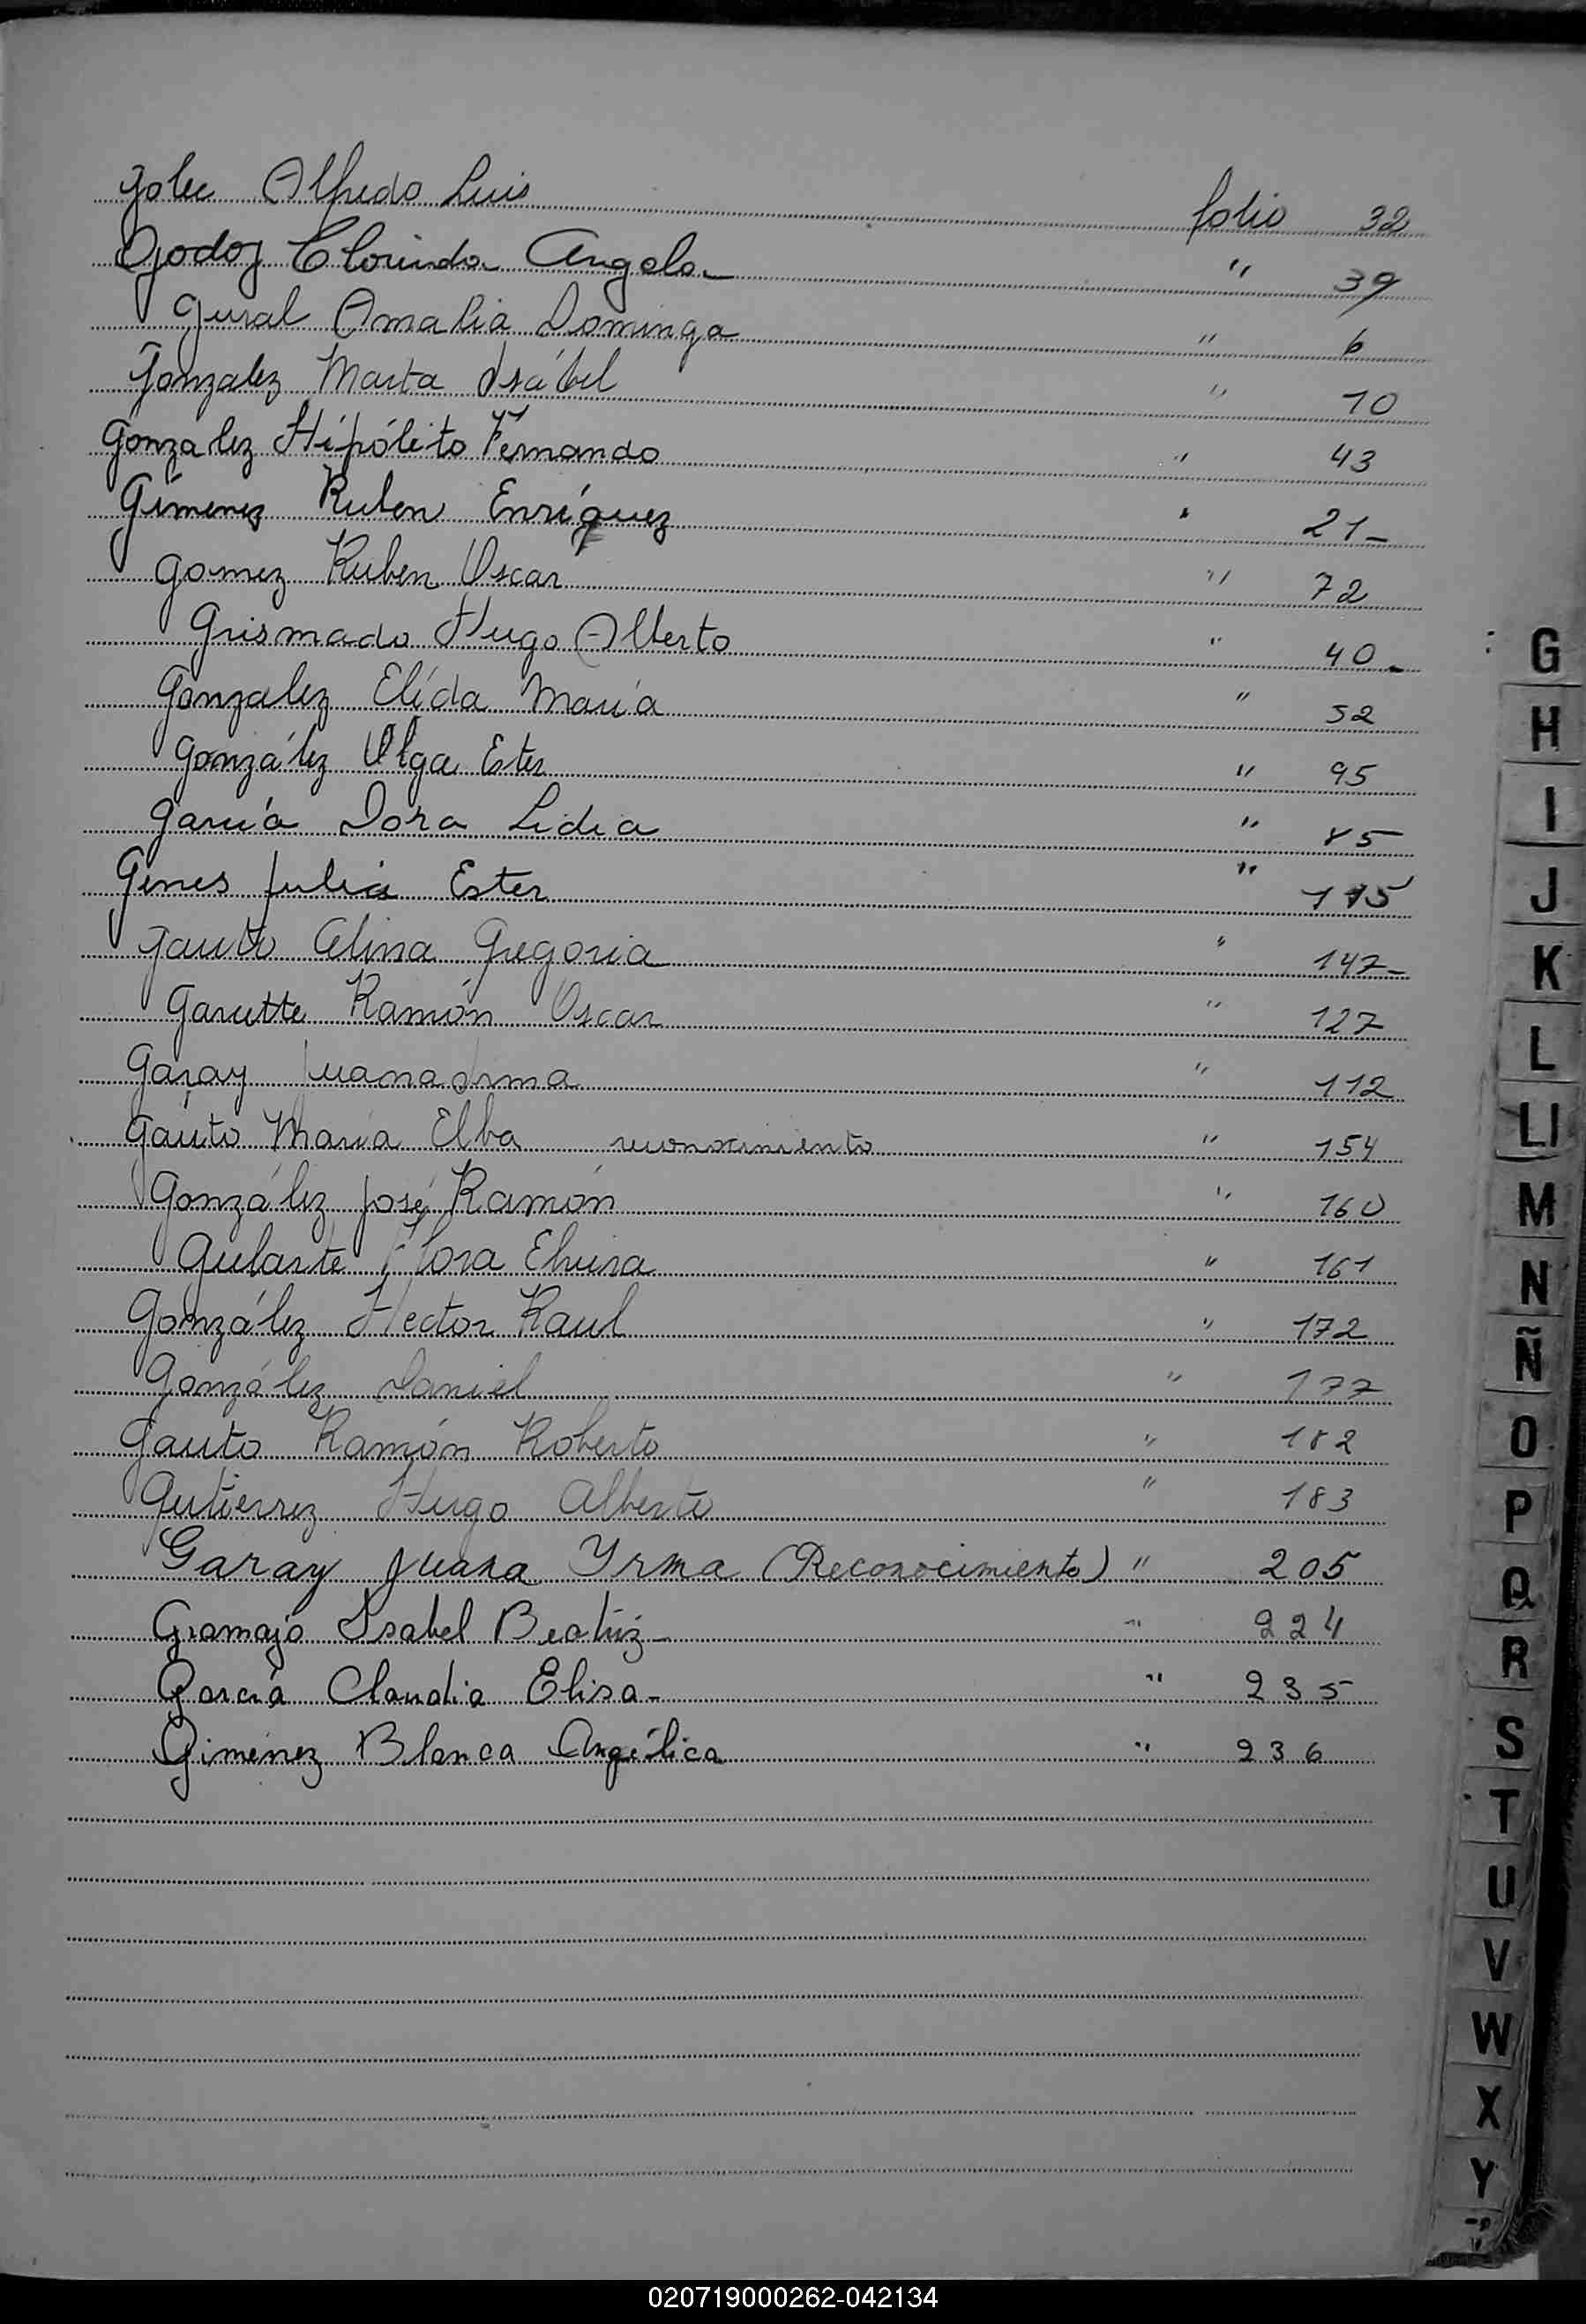 Golec Alfredo Luis folio 32
Godoy Clorinda Angela " 39
Gural Amalia Dominga " 6
Gonzalez Marta Isábel " 10
Gonzalez Hipólito Fernando " 43
Gimenez Ruben Enríquez " 21-
Gomez Ruben Oscar " 72
Grismado Hugo Alberto " 40-
Gonzalez Elída María " 52
González Olga Ester " 95
García Dora Lidia " 85
Genes Julia Ester " 115
Gauto Celina Gregoria " 147-
Ramón Oscar " 127
Garay Juana Irma " 112
Gauto María Elba reconocimiento " 154
González José Ramón " 160
Gularte Flora Elvira " 161
González Hector Raul " 172
González Daniel " 177
Gauto Ramón Roberto " 182
Gutierrez Hugo Alberto " 183
Garay Juana Yrma (Reconocimiento) " 205
Gramajo Isabel Beatriz- " 224
García Claudia Elisa- " 235
Giménez Blanca Angélica " 236
G
H
I
J
K
L
Ll
M
N
Ñ
O
P
Q
R
S
T
U
V
W
X
Y
020719000262-042134